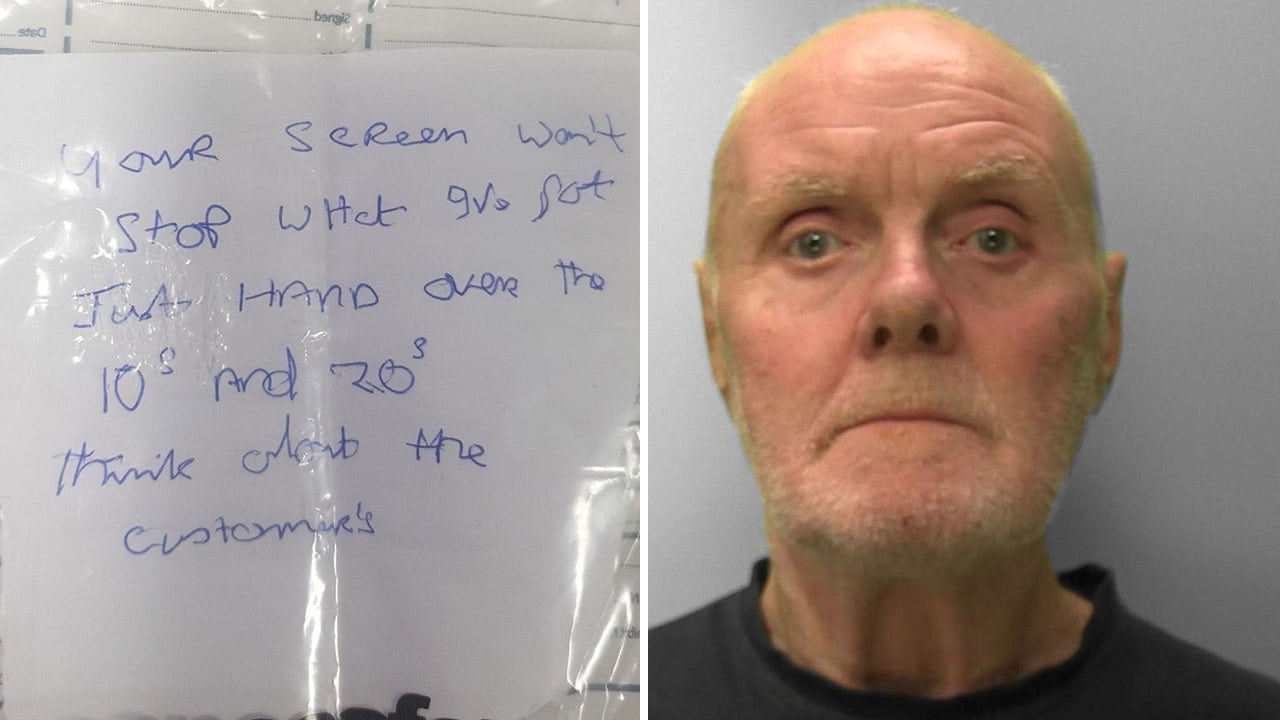 Date Signed
your screen won't
Stop wHat I've got
Just HAND over the
10s and 20s
think about the
customer's